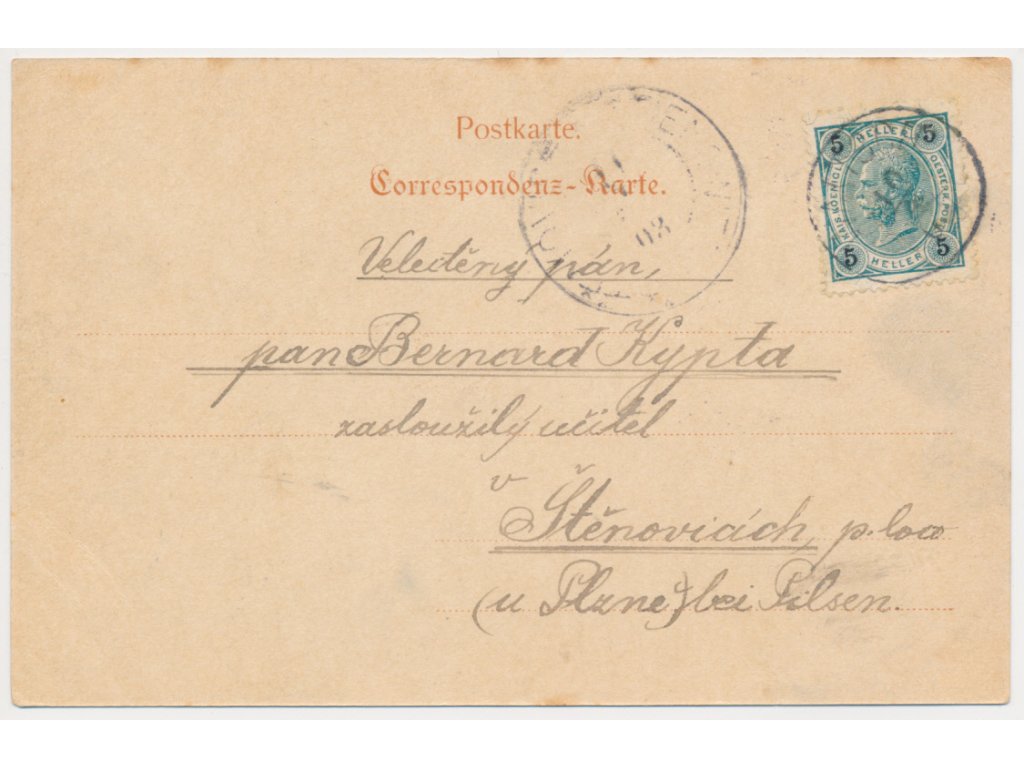 Postkarte.
Correspondenz-Karte.
5 HELLER 5
KAIS. KOENIGL.
OESTERR. POST
5 HELLER 5
03
Velectěný pán,
pan Bernard Kypta
zasloužilý učitel
v
Štěnovicích, p. loco
(u Plzne) bei Pilsen.